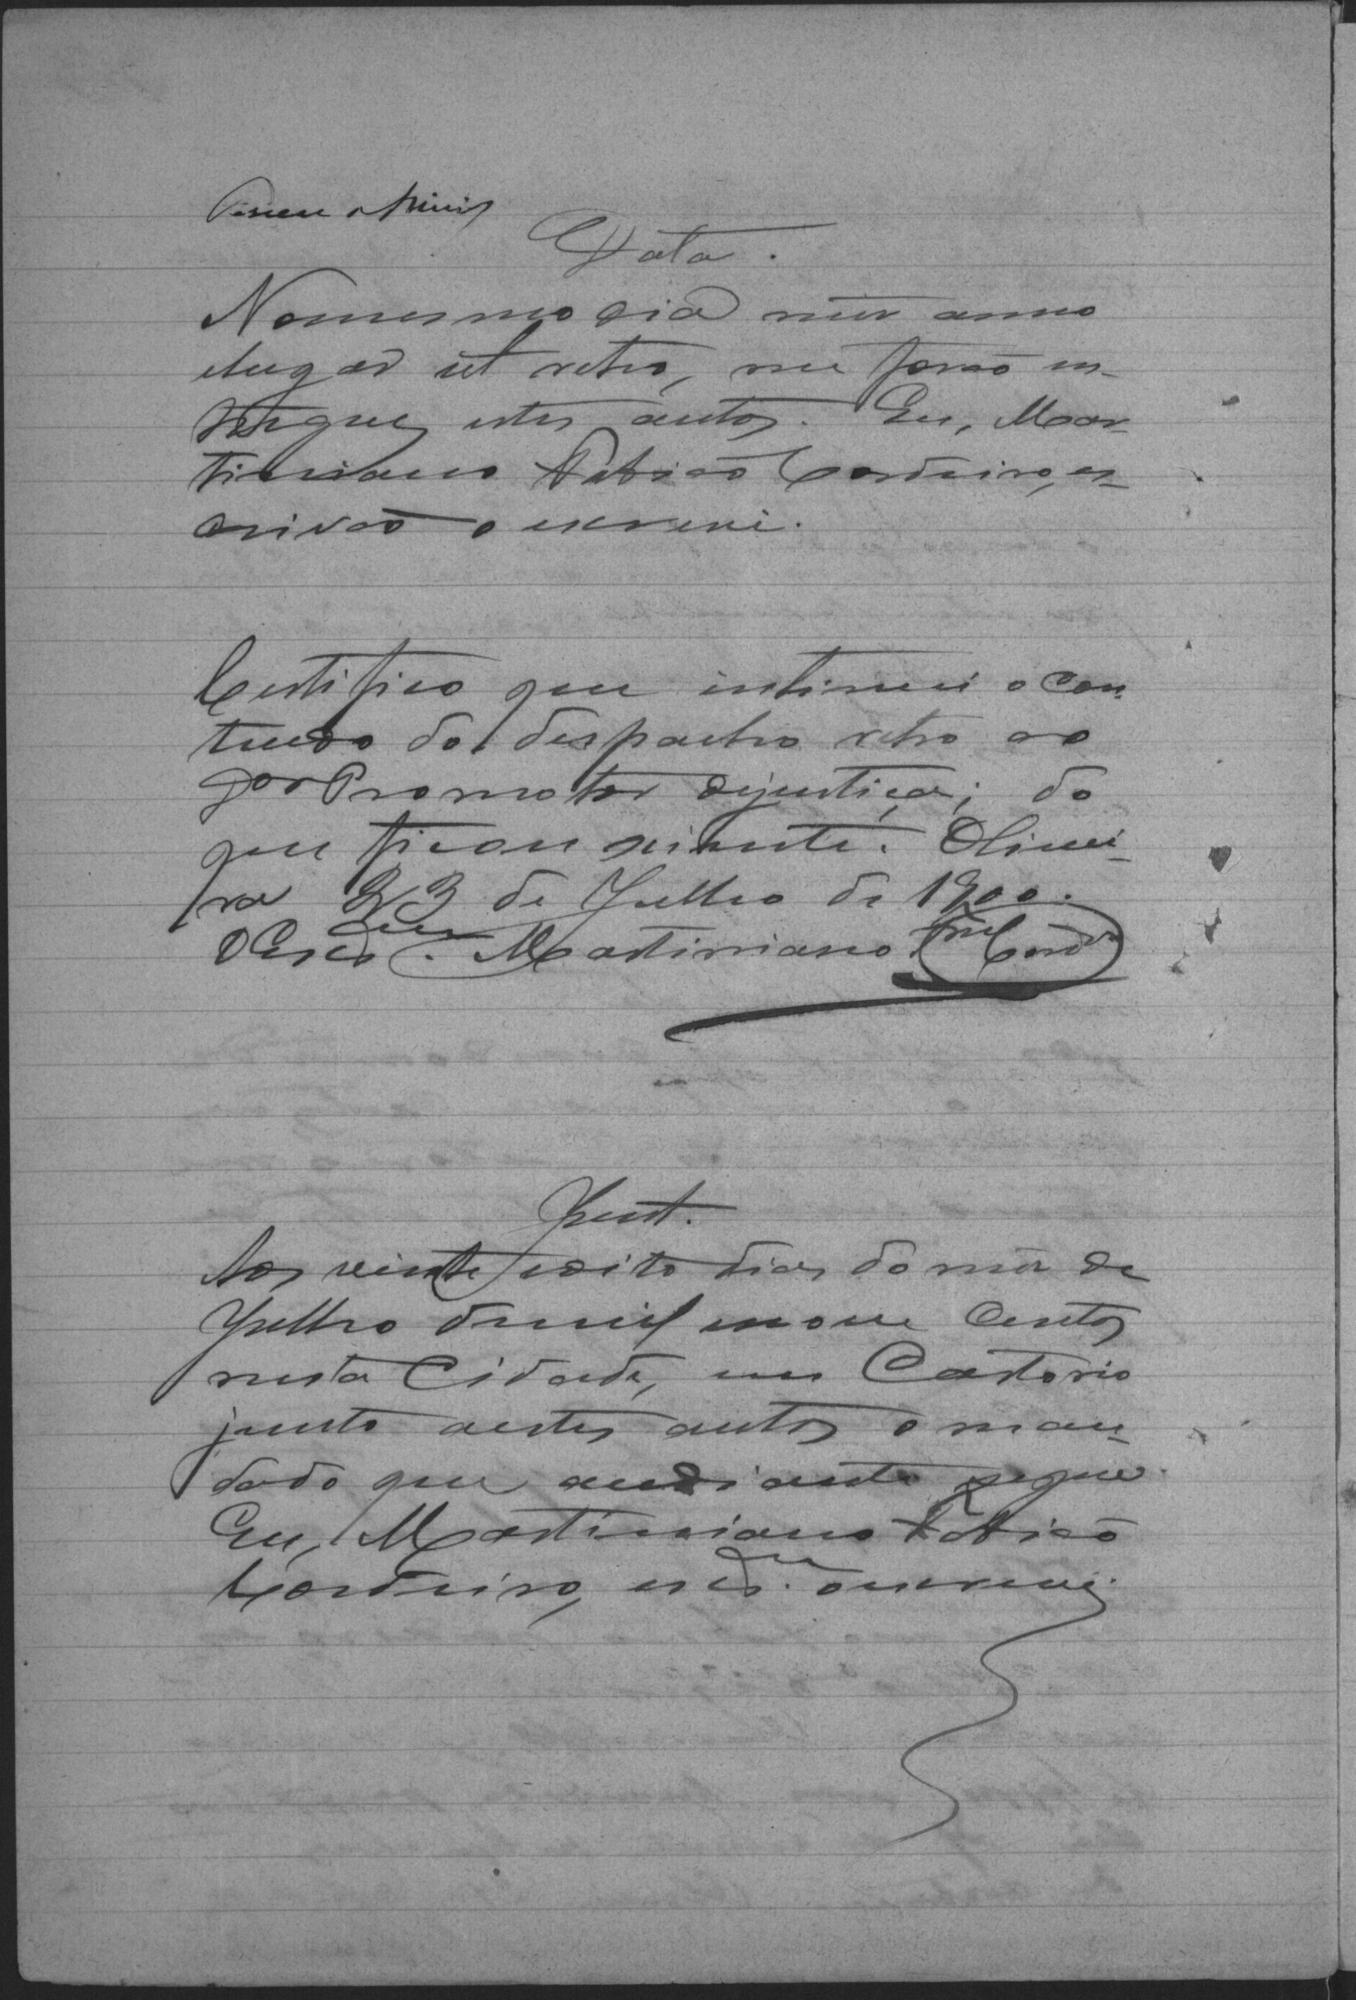 Data.
No mesmo dia mez anno
e lugar ut retro, me forão en-
tregues estes autos. Eu, Mar-
tiniano Fabião Cordeiro, es-
crivão o escrevi.
Certifico que intimei o con-
theudo do despacho retro ao
Promotor de justiça; do
que ficou sciente. Olivei-
ra 23 de Julho de 1900.
O Escr.am Martiniano Cord.ro
Junt.
Aos vinte e oito dias do mez de
Julho de mil e nove centos
nesta Cidade, em Cartorio
junto a estes autos o man-
dado que a adiante segue.
Eu, Martiniano Fabião
Cordeiro, escr.am o escrevi.